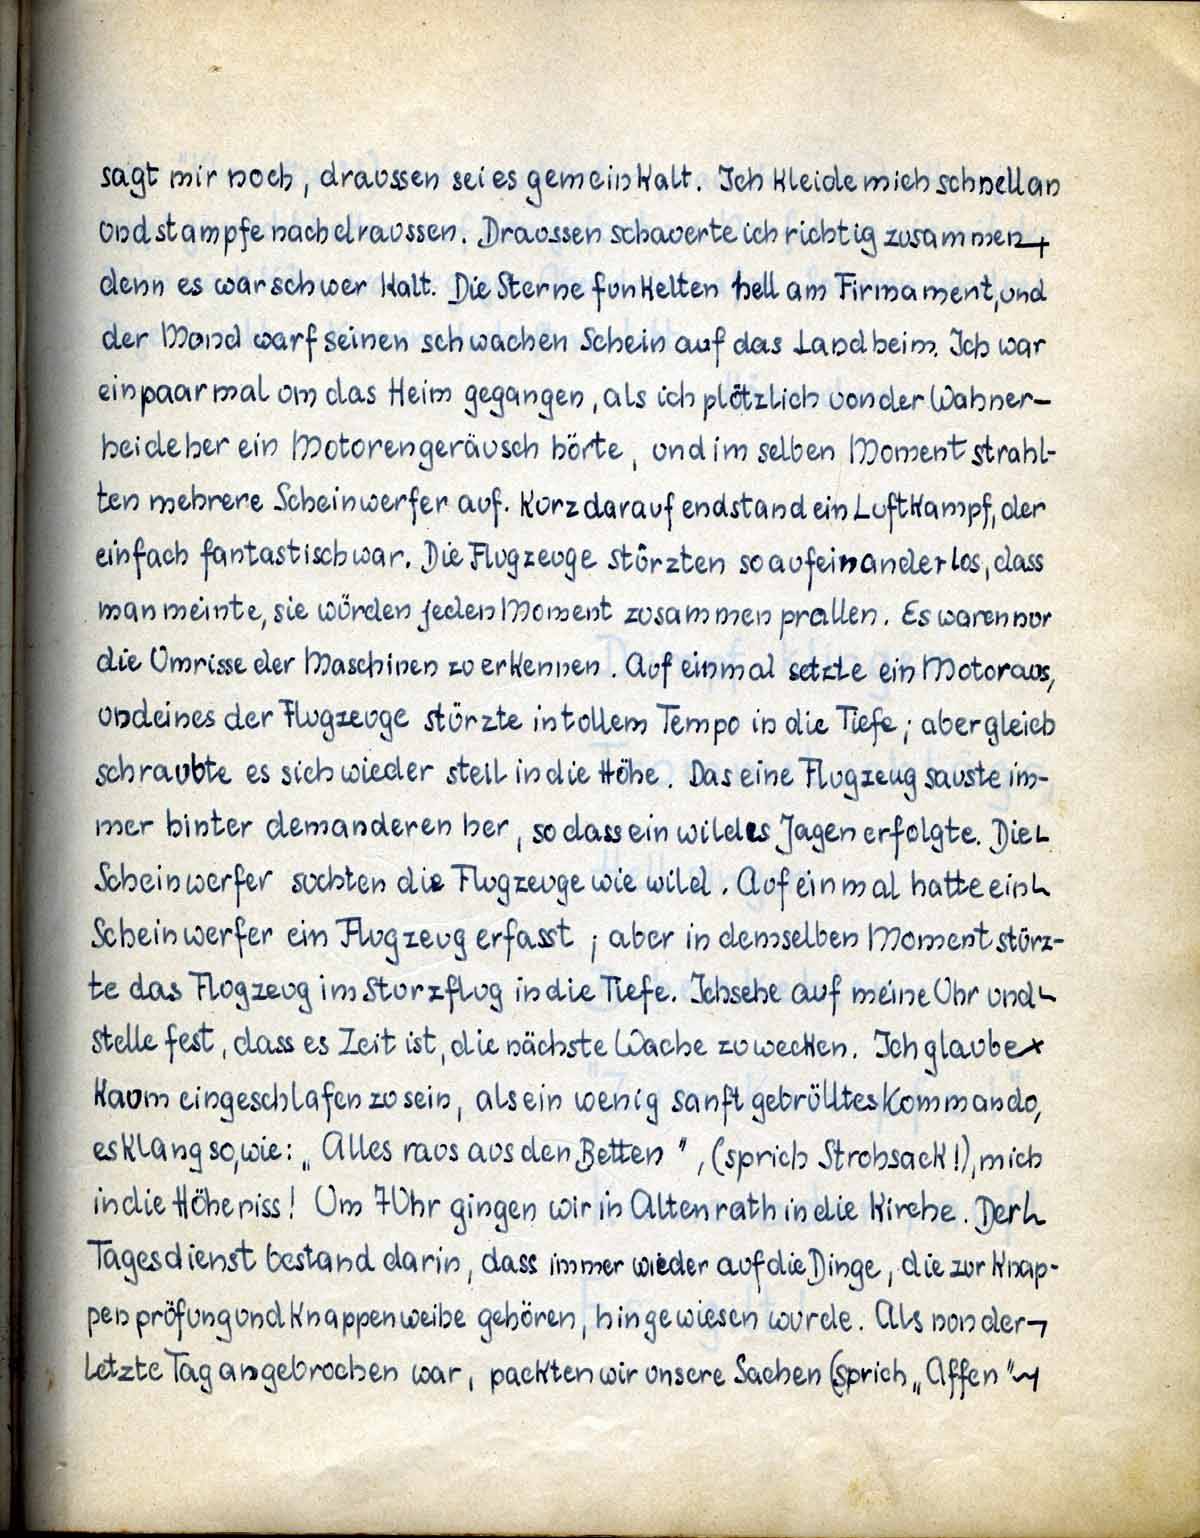 sagt mir noch, draussen sei es gemein kalt. Ich kleide mich schnell an
und stampfe nach draussen. Draussen schauerte ich richtig zusammen,
denn es war schwer kalt. Die Sterne funkelten hell am Firmament, und
der Mond warf seinen schwachen Schein auf das Landheim. Ich war
ein paar mal um das Heim gegangen, als ich plötzlich von der Wahner-
heide her ein Motorengeräusch hörte, und im selben Moment strahl-
ten mehrere Scheinwerfer auf. Kurz darauf endstand ein Luftkampf, der
einfach fantastisch war. Die Flugzeuge stürzten so aufeinander los, dass
man meinte, sie würden jeden Moment zusammen prallen. Es waren nur
die Umrisse der Maschinen zu erkennen. Auf einmal setzte ein Motor aus,
und eines der Flugzeuge stürzte in tollem Tempo in die Tiefe; aber gleich
schraubte es sich wieder steil in die Höhe. Das eine Flugzeug sauste im-
mer hinter dem anderen her, so dass ein wildes Jagen erfolgte. Die
Scheinwerfer suchten die Flugzeuge wie wild. Auf einmal hatte ein
Scheinwerfer ein Flugzeug erfasst; aber in demselben Moment stürz-
te das Flugzeug im Sturzflug in die Tiefe. Ich sehe auf meine Uhr und
stelle fest, dass es Zeit ist, die nächste Wache zu wecken. Ich glaube
kaum eingeschlafen zu sein, als ein wenig sanft gebrülltes Kommando,
es klang so, wie: „Alles raus aus den Betten", (sprich Strohsack!), mich
in die Höhe riss! Um 7 Uhr gingen wir in Altenrath in die Kirche. Der
Tagesdienst bestand darin, dass immer wieder auf die Dinge, die zur Knap-
penprüfung und Knappenweihe gehören, hingewiesen wurde. Als nun der
letzte Tag angebrochen war, packten wir unsere Sachen (sprich „Affen"